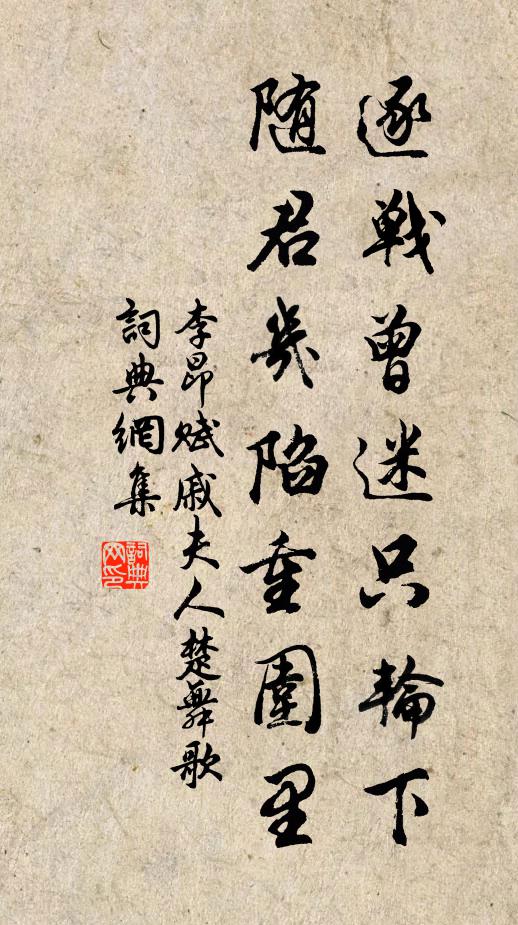 逐戦曾迷只輪下
随君幾陷重圍里
李昂賦戚夫人楚舞歌
詞典網集
詞典
网印